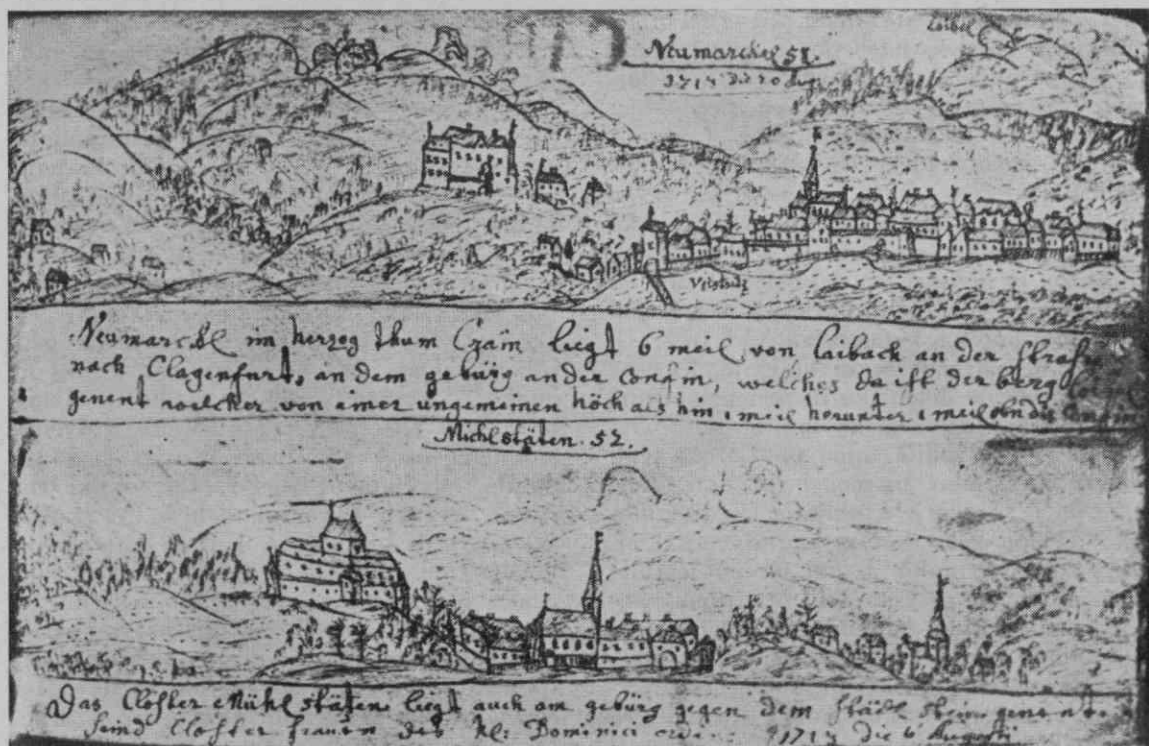 Loibel
Neumarckel 51.
1713 die 20
Veistritz
Neumarckl im herzog thum Crain liegt 6 meil von laibach an der straß
nach Clagenfurt, an dem gebürg an der confin, welches da ist der berg
genent welcher von einer ungemeinen höch als hin 1 meil herunter 1 meil
Michlstäten. 52.
Das Closter Mühlstäten liegt auch am gebürg gegen dem städl stein genent.
seind Closter frauen des Hl: Dominici 1713 die 6 Augusti